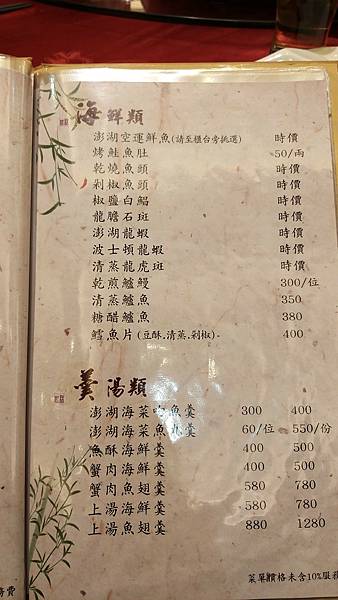 海鮮類
澎湖空運鮮魚(請至櫃台旁挑選) 時價
烤鮭魚肚 50/兩
乾燒魚頭 時價
剁椒魚頭 時價
椒鹽白鯧 時價
龍膽石斑 時價
澎湖龍蝦 時價
波士頓龍蝦 時價
清蒸龍虎斑 時價
乾煎鱸鰻 300/位
清蒸鱸魚 350
糖醋鱸魚 380
鱈魚片(豆酥.清蒸.剁椒)。 400
羹湯類
澎湖海菜吻魚羹 300 400
澎湖海菜魚丸羹 60/位 550/份
魚酥海鮮羹 400 500
蟹肉海鮮羹 400 500
蟹肉魚翅羹 580 780
上湯海鮮羹 580 780
上湯魚翅羹 880 1280
菜單價格未含10%服務
務費